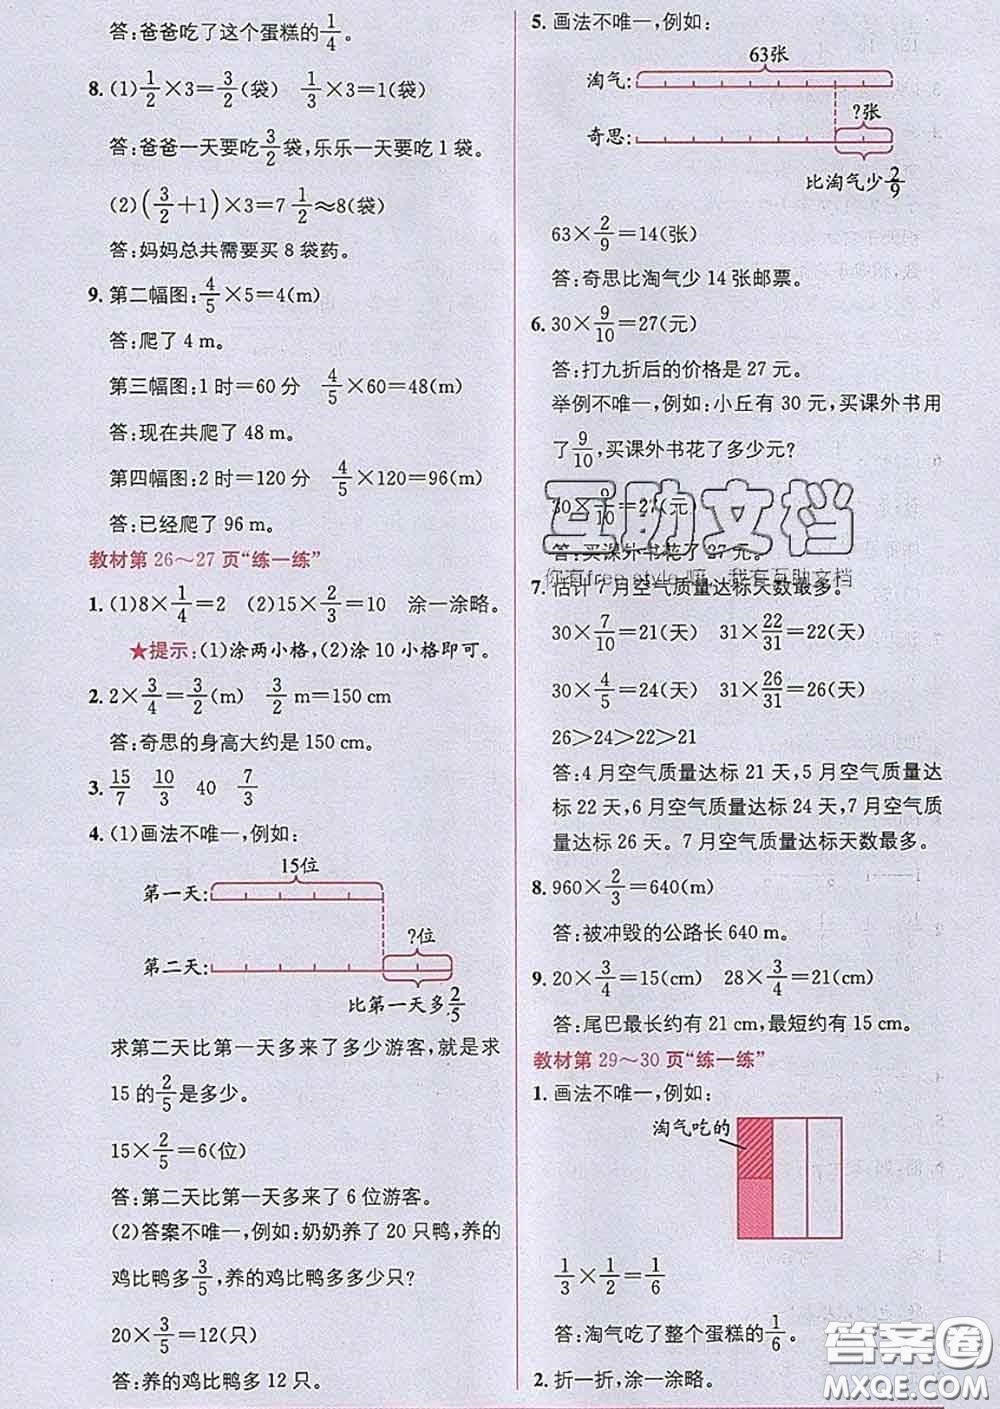 答:爸爸吃了这个蛋糕的1/4。
8. (1) 1/2×3=3/2(袋) 1/3×3=1(袋)
答:爸爸一天要吃3/2袋,乐乐一天要吃1袋。
(2) (3/2+1)×3=7 1/2≈8(袋)
答:妈妈总共需要买 8 袋药。
9. 第二幅图:4/5×5=4(m)
答:爬了 4 m。
第三幅图:1时=60分 4/5×60=48(m)
答:现在共爬了 48 m。
第四幅图:2时=120分 4/5×120=96(m)
答:已经爬了 96 m。
教材第 26～27 页“练一练”
1. (1)8×1/4=2 (2)15×2/3=10 涂一涂略。
★提示:(1)涂两小格,(2)涂 10 小格即可。
2. 2×3/4=3/2(m) 3/2 m=150 cm
答:奇思的身高大约是 150 cm。
3. 15/7 10/3 40 7/3
4. (1)画法不唯一,例如:
15位
第一天:
?位
第二天:
比第一天多2/5
求第二天比第一天多来了多少游客,就是求
15 的2/5是多少。
15×2/5=6(位)
答:第二天比第一天多来了 6 位游客。
(2)答案不唯一,例如:奶奶养了 20 只鸭,养的
鸡比鸭多3/5,养的鸡比鸭多多少只?
20×3/5=12(只)
答:养的鸡比鸭多 12 只。
5. 画法不唯一,例如:
63张
淘气:
?张
奇思:
比淘气少2/9
63×2/9=14(张)
答:奇思比淘气少 14 张邮票。
6. 30×9/10=27(元)
答:打九折后的价格是 27 元。
举例不唯一,例如:小丘有 30 元,买课外书用
了9/10,买课外书花了多少元?
30×9/10=27(元)
答:买课外书花了 27 元。
互助文档
你有free style嘛,我有互助文档
7. 估计 7 月空气质量达标天数最多。
30×7/10=21(天) 31×22/31=22(天)
30×4/5=24(天) 31×26/31=26(天)
26>24>22>21
答:4 月空气质量达标 21 天,5 月空气质量达
标 22 天,6 月空气质量达标 24 天,7 月空气质
量达标 26 天。7 月空气质量达标天数最多。
8. 960×2/3=640(m)
答:被冲毁的公路长 640 m。
9. 20×3/4=15(cm) 28×3/4=21(cm)
答:尾巴最长约有 21 cm,最短约有 15 cm。
教材第 29～30 页“练一练”
1. 画法不唯一,例如:
淘气吃的
1/3×1/2=1/6
答:淘气吃了整个蛋糕的1/6。
2. 折一折,涂一涂略。
答案圈
MXQE.COM